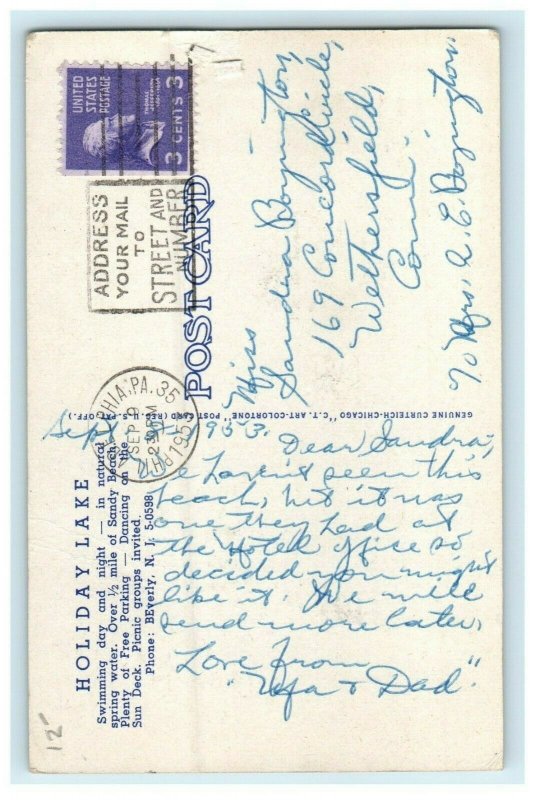 UNITED
STATES
POSTAGE
THOMAS
JEFFERSON
3 CENTS 3
ADDRESS
YOUR MAIL
TO
STREET AND
NUMBER
POST CARD
PHILADELPHIA, PA. 35
SEP 9
PM
1953
GENUINE CURTEICH-CHICAGO "C.T. ART-COLORTONE" POST CARD (REG. U.S. PAT. OFF.)
Miss
Sandra Boyington,
169 Concord
Wethersfield,
Conn.
% Mrs. A. E. Boyington
HOLIDAY LAKE
Swimming day and night — in natural
spring water. Over ½ mile of Sandy Beach.
Plenty of Free Parking Dancing on the
Sun Deck. Picnic groups invited.
Phone: BEverly, N. J. 5-0598
Sept. 1953.
Dear Sandra,
We haven't seen this
beach, but it was
one they had at
the Hotel office so
decided you might
like it. We will
send more later,
Love from
& Dad."
12-